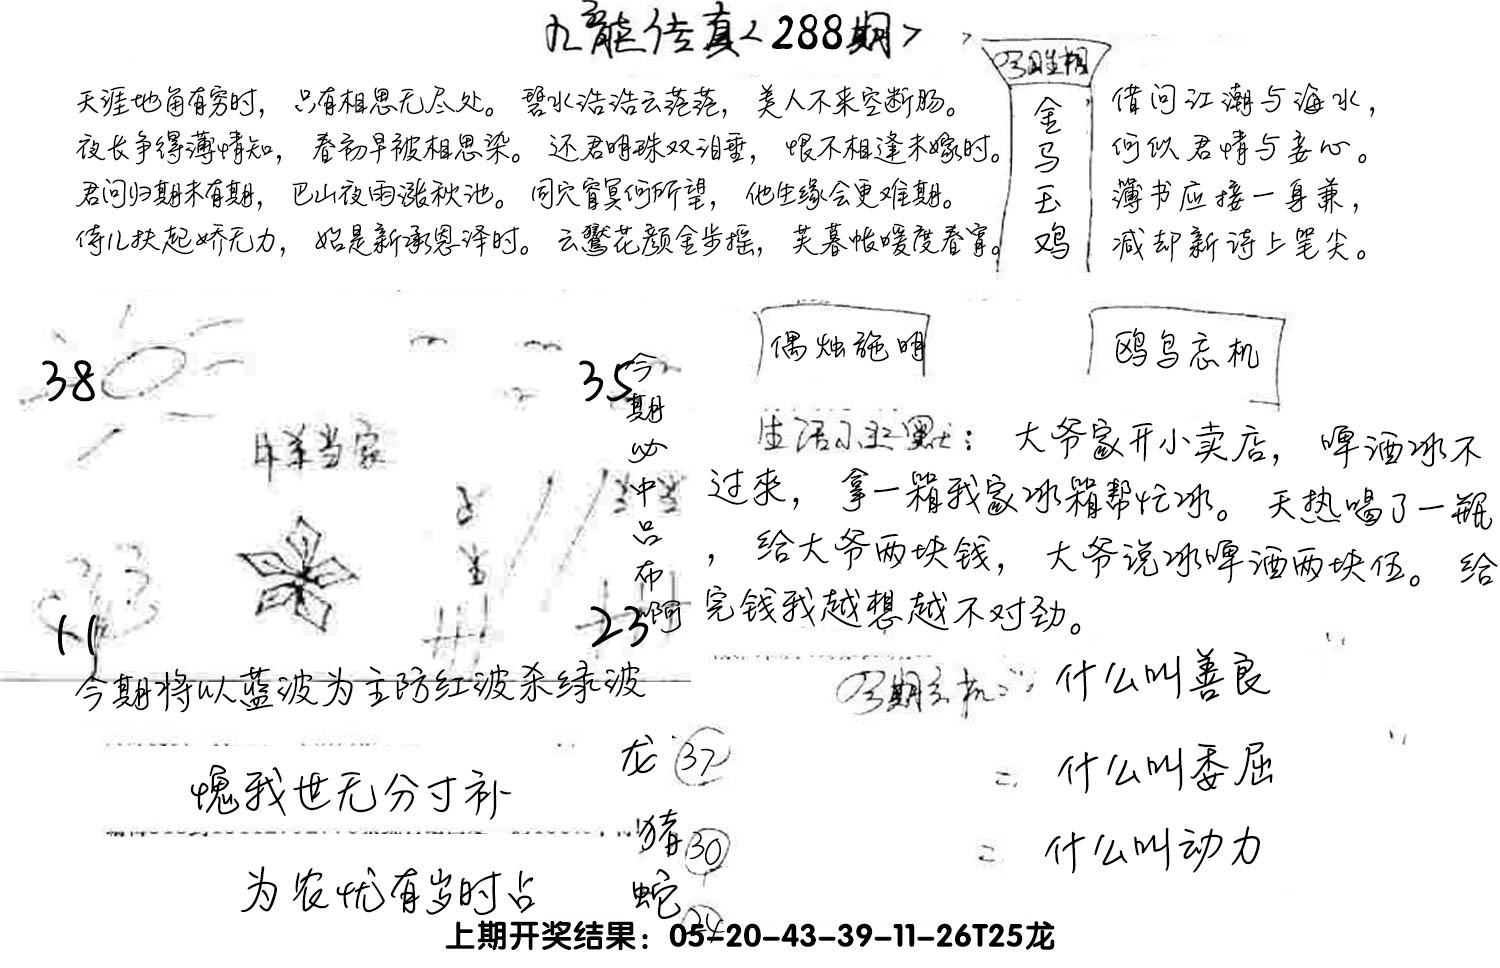 九龙传真<288期>
天涯地角有穷时，只有相思无尽处。碧水浩浩云茫茫，美人不来空断肠。
夜长争得薄情知，春初早被相思染。还君明珠双泪垂，恨不相逢未嫁时。
君问归期未有期，巴山夜雨涨秋池。同穴窅冥何所望，他生缘会更难期。
侍儿扶起娇无力，始是新承恩泽时。云鬓花颜金步摇，芙蓉帐暖度春宵。
今期生相
金马玉鸡
借问江潮与海水，
何似君情与妾心。
薄书应接一身兼，
减却新诗上笔尖。
偶烛施明
鸥鸟忘机
38
35
牛羊当家
今期必中吕布啊
11
23
今期将以蓝波为主防红波杀绿波
生活小幽默：大爷家开小卖店，啤酒冰不
过来，拿一箱我家冰箱帮忙冰。天热喝了一瓶
，给大爷两块钱，大爷说冰啤酒两块伍。给
完钱我越想越不对劲。
今期玄机：什么叫善良
=什么叫委屈
=什么叫动力
愧我世无分寸补
为农忧有岁时占
龙 37
猪 30
蛇 24
上期开奖结果：05-20-43-39-11-26T25龙